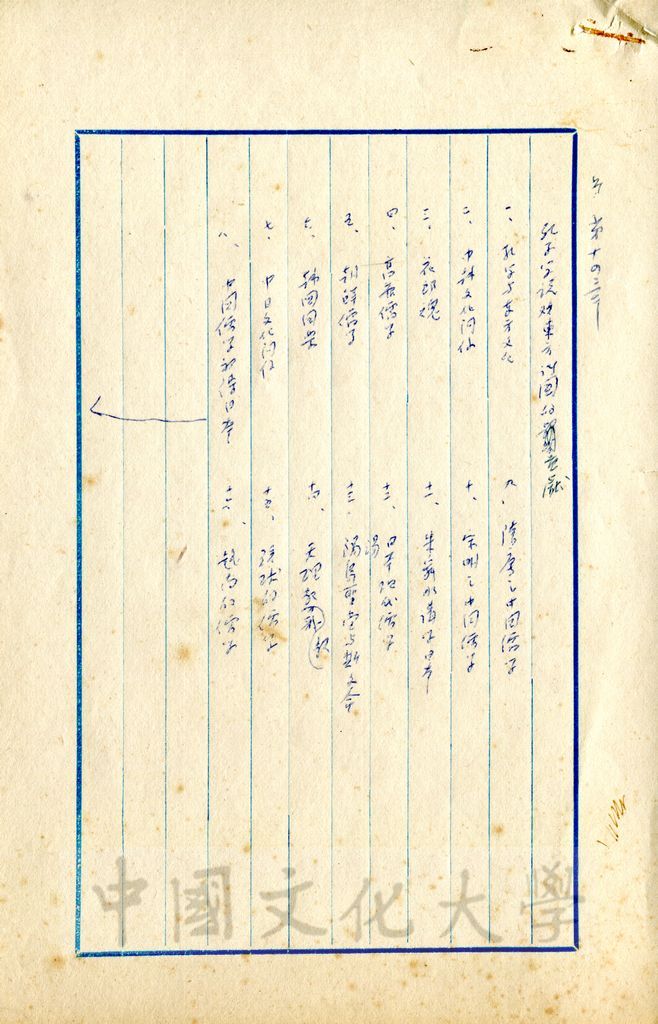 第十四章
孔子學說對東方諸國的貢獻
一、孔子與東方文化
二、中韓文化關係
三、花郎魂
四、高麗儒學
五、朝鮮儒學
六、韓國國學
七、中日文化關係
八、中國儒學初傳日本
九、隋唐之中國儒學
十、宋明之中國儒學
十一、朱舜水講學日本
十二、日本現代儒學
十三、湯島聖堂與斯文會
十四、天理教
十五、琉球的儒學
十六、越南的儒學
中國文化大學